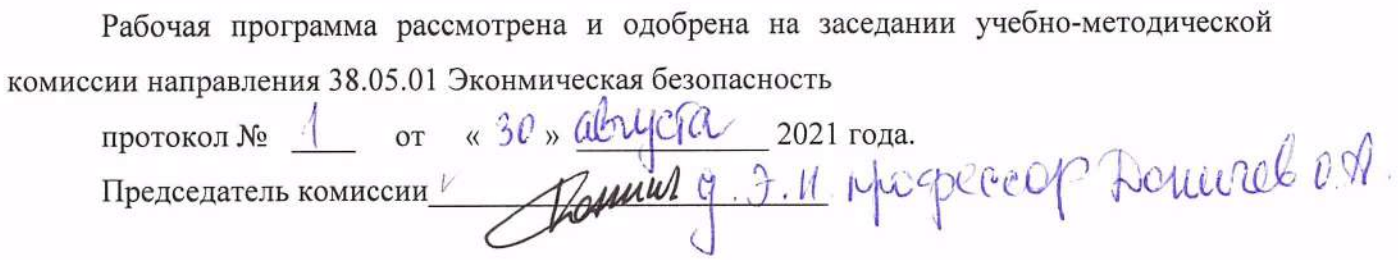 Рабочая программа рассмотрена и одобрена на заседании учебно-методической
комиссии направления 38.05.01 Эконмическая безопасность
протокол № 1 от « 30 » августа 2021 года.
Председатель комиссии д.э.н. профессор Доничев О.А.